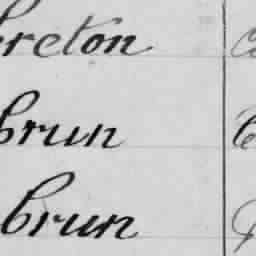 reton
brun
brun